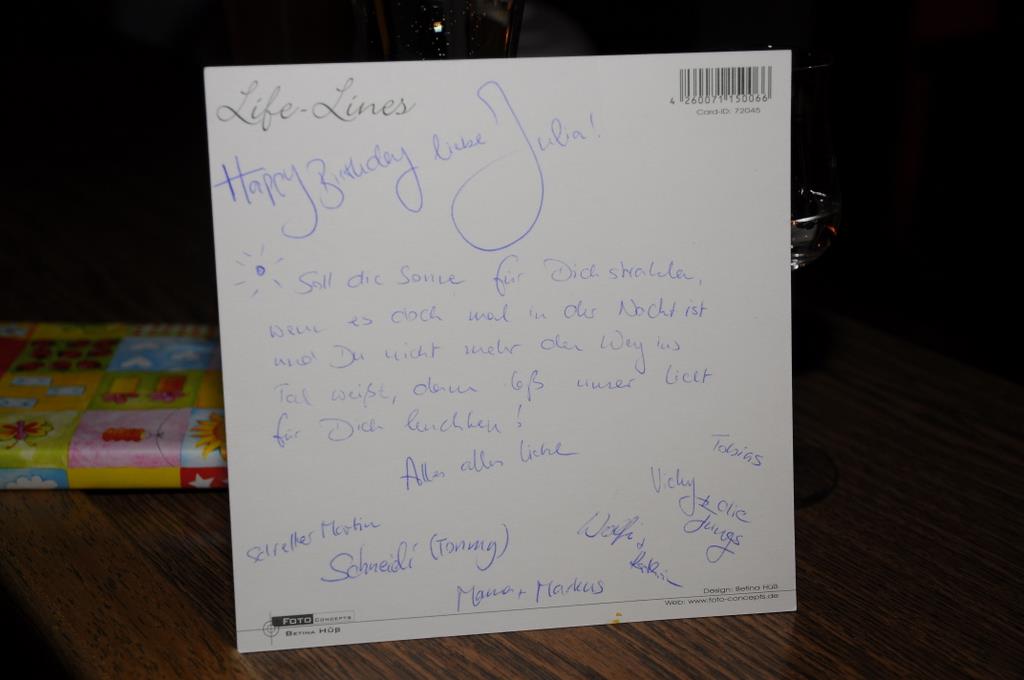 Life-Lines
4 260071 150066
Card-ID: 72045
Happy Birthday liebe Julia!
Soll die Sonne für Dich strahlen,
wenn es doch mal in der Nacht ist
und Du nicht mehr den Weg ins
Tal weißt, dann laß unser Licht
für Dich leuchten!
Alles alles liebe
Tobias
Vicky & die
Jungs
Wolfi,
Martin
Schneidi (Tommy)
+ Markus
Design: Betina Hüß
Web: www.foto-concepts.de
FOTO CONCEPTS
BETINA HÜß